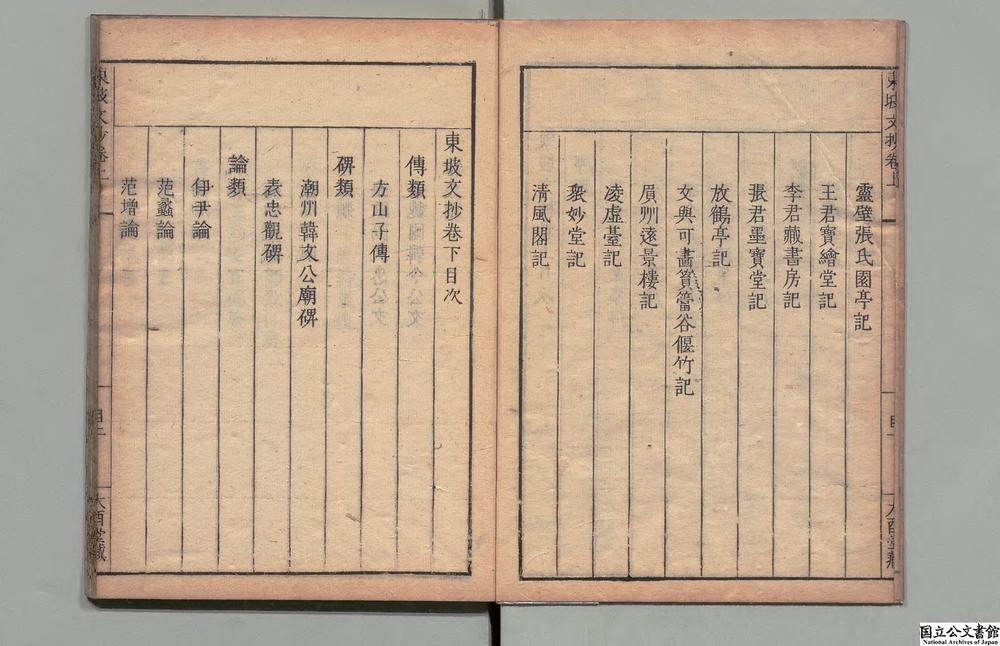 東坡文抄卷上
目一
大酉堂藏
靈壁張氏園亭記
王君寶繪堂記
李君藏書房記
張君墨寶堂記
放鶴亭記
文與可畵篔簹谷偃竹記
眉州遠景樓記
凌虛臺記
衆妙堂記
淸風閣記
東坡文抄卷下目次
傳類
方山子傳
碑類
潮州韓文公廟碑
表忠觀碑
論類
伊尹論
范蠡論
范增論
東坡文抄卷上
目二
大酉堂藏
国立公文書館
National Archives of Japan